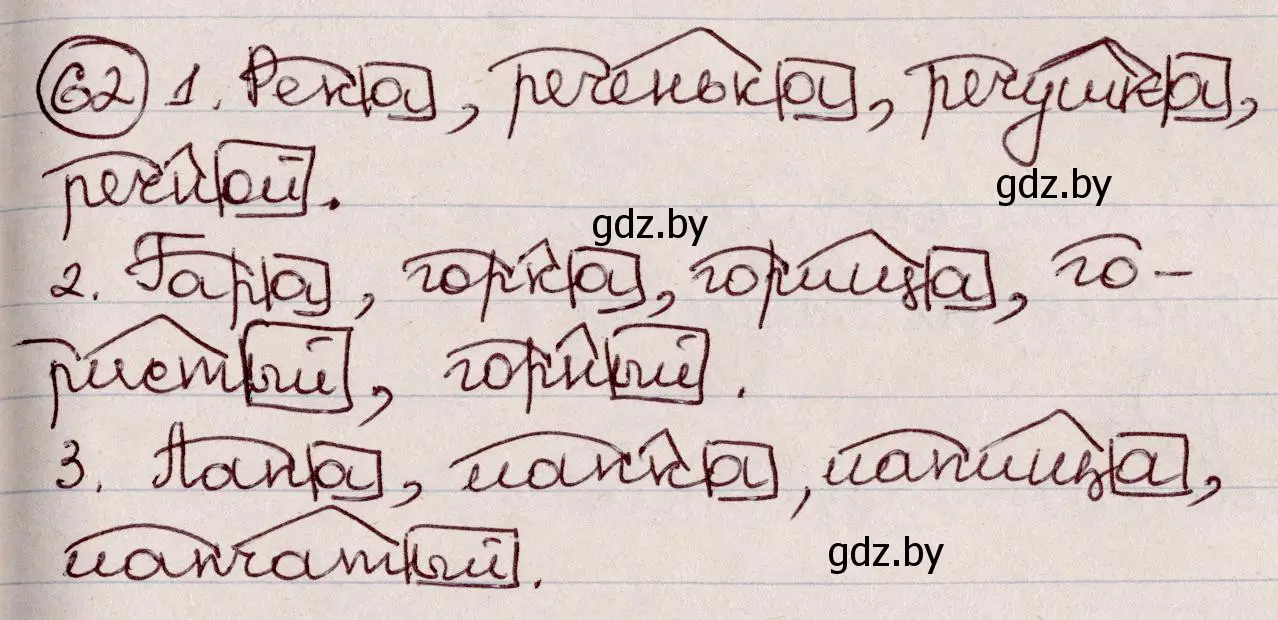 62 1. Река, реченька, речушка,
речной.
gdz.by
gdz.by
2. Гара, горка, горища, го-
ристый, горный.
3. Лапа, лапка, лапища,
лапчатый.
gdz.by